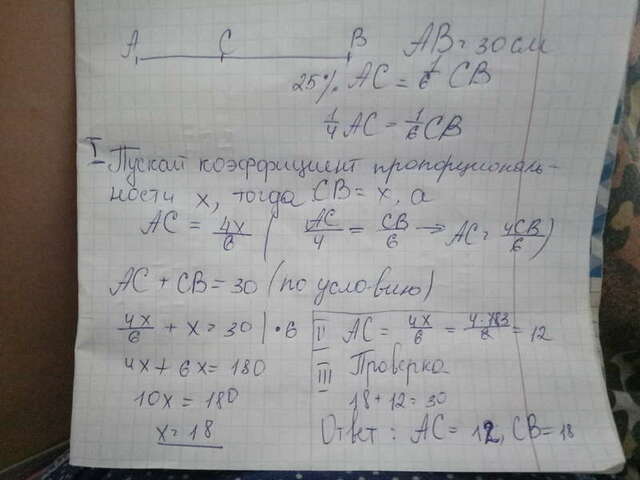 A C B AB = 30 см
25% AC = 1/6 CB
1/4 AC = 1/6 CB
I Пускай коэффициент пропорциональ-
ности x, тогда CB = x, а
AC = 4x/6 ( AC/4 = CB/6 → AC = 4CB/6 )
AC + CB = 30 (по условию)
4x/6 + x = 30 | · 6
4x + 6x = 180
10x = 180
x = 18
II AC = 4x/6 = 4·183/6 = 12
III Проверка
18 + 12 = 30
Ответ : AC = 12, CB = 18